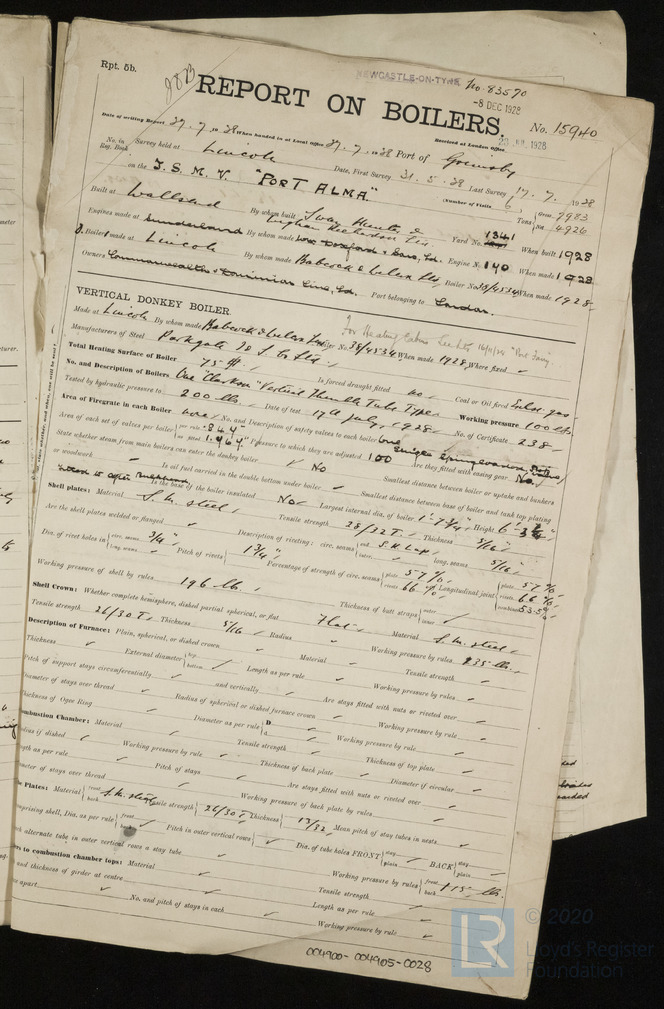 Rpt. 5b.
NEWCASTLE-ON-TYNE No. 83570
-8 DEC 1928
REPORT ON BOILERS.
No. 15940
Received at London Office JUL 1928
Date of writing Report 27.7.1928 When handed in at Local Office 27.7.1928 Port of Grimsby
No. in Reg. Book. Survey held at Lincoln Date, First Survey 31.5.28 Last Survey 17.7.1928
(Number of Visits 6)
on the T.S.M.V. "PORT ALMA." Tons Gross 7983 Net 4926
Built at Wallsend By whom built Swan Hunter & Wigham Richardson Ltd. Yard No. 1341 When built 1928
Engines made at Sunderland By whom made Wm Doxford & Sons, Ld. Engine No. 140 When made 1928
Boilers made at Lincoln By whom made Babcock & Wilcox Ltd Boiler No. 38/4534 When made 1928
Owners Commonwealth & Dominion Line, Ld. Port belonging to London.
VERTICAL DONKEY BOILER
Made at Lincoln By whom made Babcock & Wilcox Ltd Boiler No. 38/4534 When made 1928 Where fixed
Manufacturers of Steel Parkgate I. & S. Co Ltd
Total Heating Surface of Boiler 75 Is forced draught fitted no Coal or Oil fired Exhst. gas
No. and Description of Boilers One "Clarkson" Vertical Thimble Tube Type Working pressure 100 lbs
Tested by hydraulic pressure to 200 lbs. Date of test 17th July, 1928 No. of Certificate 238
Area of Firegrate in each Boiler none No. and Description of safety valves to each boiler One
Area of each set of valves per boiler per rule as fitted Pressure to which they are adjusted 100 Are they fitted with easing gear No.
State whether steam from main boilers can enter the donkey boiler No Smallest distance between boiler or uptake and bunkers
or woodwork Is oil fuel carried in the double bottom under boiler Smallest distance between base of boiler and tank top plating
Is the base of the boiler insulated No Largest internal dia. of boiler 1'-7 3/4" Height
Shell plates: Material S.M. steel Tensile strength 28/32 T. Thickness 5/16"
Are the shell plates welded or flanged Description of riveting: circ. seams S.R. Lap long. seams
Dia. of rivet holes in circ. seams long. seams 3/4" Pitch of rivets 1 3/4" Percentage of strength of circ. seams plate 57% rivets 66% of Longitudinal joint plate 57% rivets 66% combined 53.5%
Working pressure of shell by rules 196 lb. Thickness of butt straps outer inner
Shell Crown: Whether complete hemisphere, dished partial spherical, or flat Flat Material S.M. steel
Tensile strength 26/30 T. Thickness 5/16 Radius Working pressure by rules 235 lb.
Description of Furnace: Plain, spherical, or dished crown Material Tensile strength
Thickness External diameter top bottom Length as per rule Working pressure by rules
Pitch of support stays circumferentially and vertically Are stays fitted with nuts or riveted over
Diameter of stays over thread Radius of spherical or dished furnace crown Working pressure by rule
Thickness of Ogee Ring Diameter as per rule D d Working pressure by rule
Combustion Chamber: Material Tensile strength Thickness of top plate
Radius if dished Working pressure by rule Thickness of back plate Diameter if circular
Length as per rule Pitch of stays Are stays fitted with nuts or riveted over
Diameter of stays over thread Working pressure of back plate by rules
Tube Plates: Material front back S.M. steel Tensile strength 26/30 T. Thickness 17/32 Mean pitch of stay tubes in nests
comprising shell, Dia. as per rule front back Pitch in outer vertical rows Dia. of tube holes FRONT stay plain BACK stay plain
alternate tube in outer vertical rows a stay tube Working pressure by rules front back 115 lbs.
to combustion chamber tops: Material Tensile strength
and thickness of girder at centre Length as per rule
apart No. and pitch of stays in each Working pressure by rule
004900-004905-0028
© 2020
Lloyd's Register
Foundation
LR